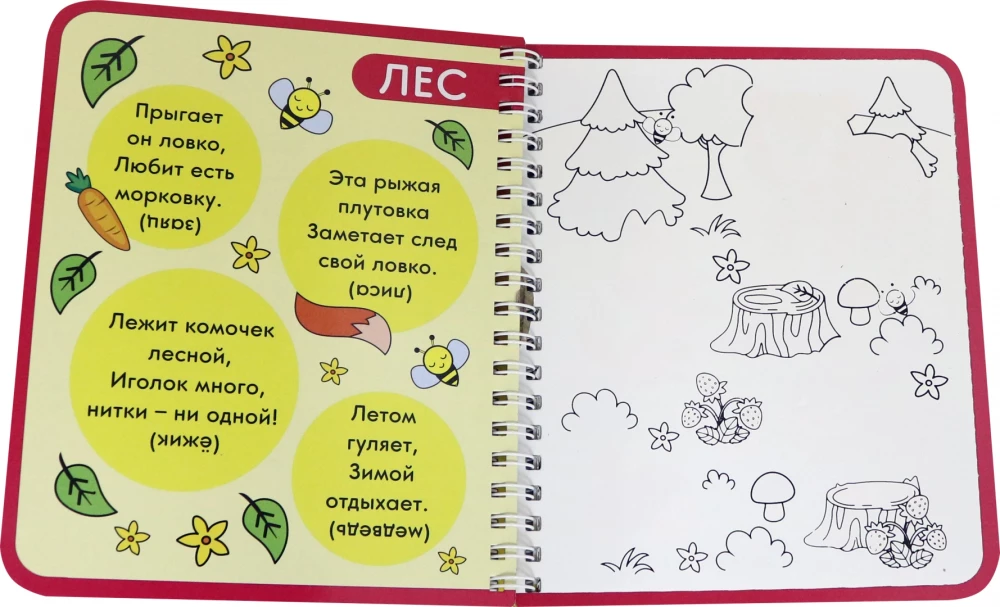 ЛЕС
Прыгает
он ловко,
Любит есть
морковку.
(заяц)
Эта рыжая
плутовка
Заметает след
свой ловко.
(лиса)
Лежит комочек
лесной,
Иголок много,
нитки – ни одной!
(ёжик)
Летом
гуляет,
Зимой
отдыхает.
(медведь)